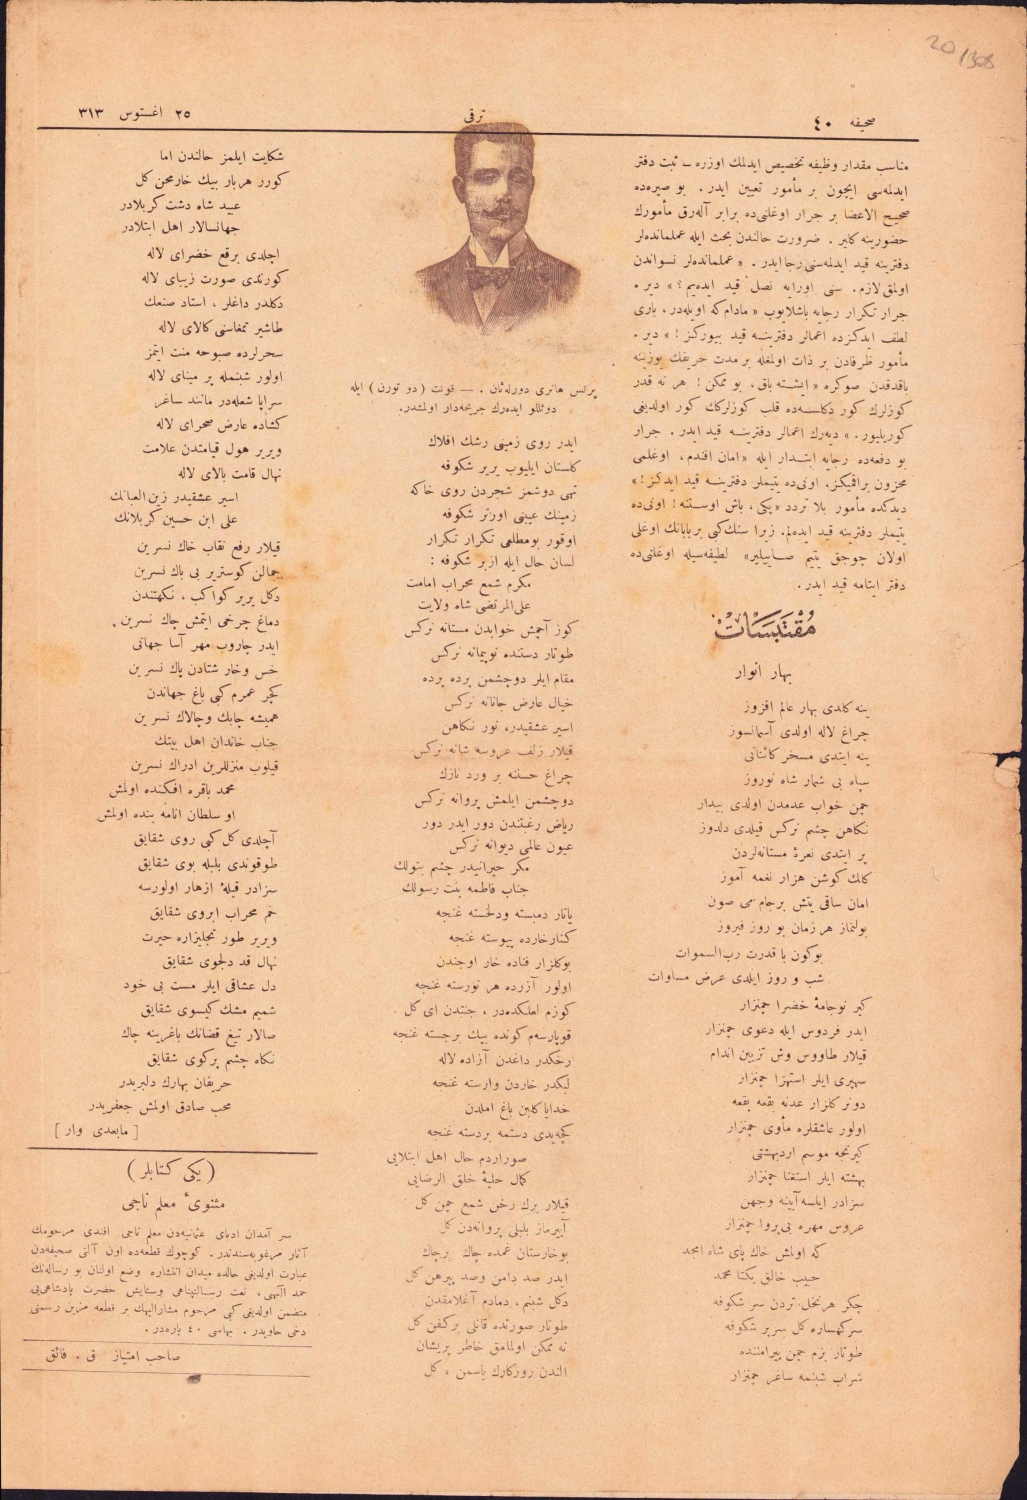 صحیفه ٤٠
ترقی
٢٥ اغستوس ٣١٣
مناسب مقدار وظیفه تخصیص ایدلمك اوزره ــ ثبت دفتر
ایدلمه‌سی ایچون بر مأمور تعیین ایدر . بو صیره‌ده
صحیح الاعضا بر جرار اوغلنی‌ده برابر آله‌رق مأمورك
حضورینه کلیر . ضرورت حالندن بحث ایله عملمانده‌لر
دفترینه قید ایدلمه‌سنی رجا ایدر . « عملمانده‌لر نسواندن
اولمق لازم . سنی اورایه نصل قید ایده‌یم ؟ » دیر .
جرار تکرار رجایه باشلایوب « مادام که اویله‌در ، باری
لطف ایدکزده اعمالر دفترینـه قید بیورکز ! » دیر .
مأمور ظرفادن بر ذات اولمغله بر مدت حریفك یوزینه
باقدقدن صوکره « ایشته باق ، بو ممکن ! هر نه قدر
کوزلرك کور دکلسه‌ده قلب کوزلرکك کور اولدیغی
کوریلیور . » دیه‌رك اعمالر دفترینـه قید ایدر . جرار
بو دفعه‌ده رجایه ابتـدار ایله « امان افندم ، اوغلمی
محزون براقمیکز . اونی‌ده یتیملر دفترینـه قید ایدکز ! »
دیدکده مأمور بلا تردد « پکی ، باش اوستنه ! اونی‌ده
یتیملر دفترینه قید ایده‌لم . زیرا سنك کبی بر بابانك اوغلی
اولان چوجق یتیم صـاییلیر » لطیفه‌سیله اوغلنی‌ده
دفتر ایتامه قید ایدر .
مقتبسات
بهار انوار
ینه کلدی بهار عالم افروز
چراغ لاله اولدی آسمانسوز
ینه ایتدی مسخر کائناتی
سپاه بی شمار شاه نوروز
چمن خواب عدمدن اولدی بیدار
نکاهن چشم نرکس قیلدی دلدوز
پر ایتدی نعرهٔ مستانه‌لردن
كلك کوشن هزار نغمه آموز
امان ساقی یتش برجام می صون
بولنماز هر زمان بو روز فیروز
بوکون با قدرت رب السموات
شب و روز ایلدی عرض مساوات
کیر نوجامهٔ خضرا چمنزار
ایدر فردوس ایله دعوی چمنزار
قیلار طاووس وش تزیین اندام
سپهری ایلر استهزا چمنزار
دونر کلزار عدنه بقعه بقعه
اولور عاشقلره مأوی چمنزار
کیرنجه موسم اردبهشتی
بهشته ایلر استغنا چمنزار
سزادر ایلسه آیینه وجهن
عروس مهره بی‌پروا چمنزار
که اولمش خاك پای شاه امجد
حبیب خالق یکتا محمد
چکر هرنخل‌تردن سر شکوفه
سرکهساره کل سرپر شکوفه
طوتار بزم چمن پیرامننده
شراب شبنمه ساغر چمنزار
پرنس هانری دورله‌ئان . — قونت ( دو تورن ) ایله
دوئللو ایده‌رك جریحه‌دار اولمشدر.
ایدر روی زمینی رشك افلاك
کلستان ایلیوب یریر شکوفه
تهی دوشمز شجردن روی خاکه
زمینك عیبنی اورتر شکوفه
اوقور بومطلعی تکرار تکرار
لسان حال ایله ازبر شکوفه :
مکرم شمع محراب امامت
علی‌المرتضی شاه ولایت
کوز آچمش خوابدن مستانه نرکس
طوتار دستنده نوپیمانه نرکس
مقام ایلر دوچشمن پرده پرده
خیال عارض جانانه نرکس
اسیر عشقیدر، نور نکاهن
قیلار زلف عروسه شانه نرکس
چراغ حسننه بر ورد نازك
دوچشمن ایلمش پروانه نرکس
ریاض رغبتدن دور ایدر دور
عیون عالمی دیوانه نرکس
مکر حیرانیدر چشم بتولك
جناب فاطمه بنت رسولك
یاتار دمبسته ودلخسته غنجه
کنارخارده پیوسته غنجه
بوکلزار فناده خار اوجندن
اولور آزرده هر نورسته غنجه
کوزم اهلکده‌در ، جنتدن ای کل .
قوپارسه‌م کونده بیك برجسته غنجه
رخکدر داغدن آزاده لاله
لبکدر خاردن وارسته غنجه
خدایا کلبن باغ املدن
کچه‌یدی دستمه بردسته غنجه
صوراردم حال اهل ابتلایی
کمال حلیهٔ خلق الرضایی
قیلار برك رخن شمع چمن کل
آییرماز بلبلی پروانه‌دن کل
بوخارستان غمده چاك برچاك
ایدر صد دامن وصد پیرهن کل
دکل شبنم ، دمادم آغلامقدن
طوتار صورتده قانلی برکفن کل
نه ممکن اولمامق خاطر پریشان
الندن روزکارك یاسمن ، کل
شکایت ایلمز حالندن اما
کورر هربار بیك خارمحن کل
عبید شاه دشت کربلادر
جهانسالار اهل ابتلادر
اچلدی برقع خضرای لاله
کورندی صورت زیبای لاله
دکلدر داغلر ، استاد صنعك
طاشیر تمغاسنی کالای لاله
سحرلرده صبوحه منت ایتمز
اولور شبنمله پر مینای لاله
سراپا شعله‌در مانند ساغر
کشاده عارض صحرای لاله
ویریر هول قیامتدن علامت
نهال قامت بالای لاله
اسیر عشقیدر زین العبانك
علی ابن حسین کربلانك
قیلار رفع نقاب خاك نسرین
جمالن کوستریر بی باك نسرین
دکل یریر کواکب ، نکهتندن
دماغ چرخی ایتمش چاك نسرین .
ایدر جاروب مهر آسا جهانی
خس وخار شتادن پاك نسرین
کچر عمرم کبی باغ جهاندن
همیشه چابك وچالاك نسرین
جناب خاندان اهل بیتك
قیلوب منزللرین ادراك نسرین
محمد باقره افکنده اولمش
او سلطان انامه بنده اولمش
آچلدی کل کبی روی شقایق
طوقوندی بلبله بوی شقایق
سزادر قبلهٔ ازهار اولورسه
خم محراب ابروی شقایق
ویریر طور تجلیزاره حیرت
نهال قد دلجوی شقایق
دل عشاقی ایلر مست بی خود
شمیم مشك کیسوی شقایق
صالار تیغ قضانك باغرینه چاك
نکاه چشم پرکوی شقایق
حریفان بهارك دلبریدر
محب صادق اولمش جعفریدر
[ مابعدی وار ]
( یکی کتابلر )
مثنوئ معلم ناجی
سر آمدان ادبای عثمانیه‌دن معلم ناجی افندی مرحومك
آثار مرغوبه‌سندندر . کوچوك قطعه‌ده اون آلتی صحیفه‌دن
عبارت اولدیغی حالده میدان انتشاره وضع اولنان بو رساله‌نك
حمد الٓهی ، نعت رسـالتپناهی وستایش حضرت پادشاهی‌یی
متضمن اولدیغی کبی مرحوم مشارالیهك بر قطعه مزین رسمنی
دخی حاویدر . بهاسی ٤٠ پاره‌در .
صاحب امتیاز ق . فائق
20/308